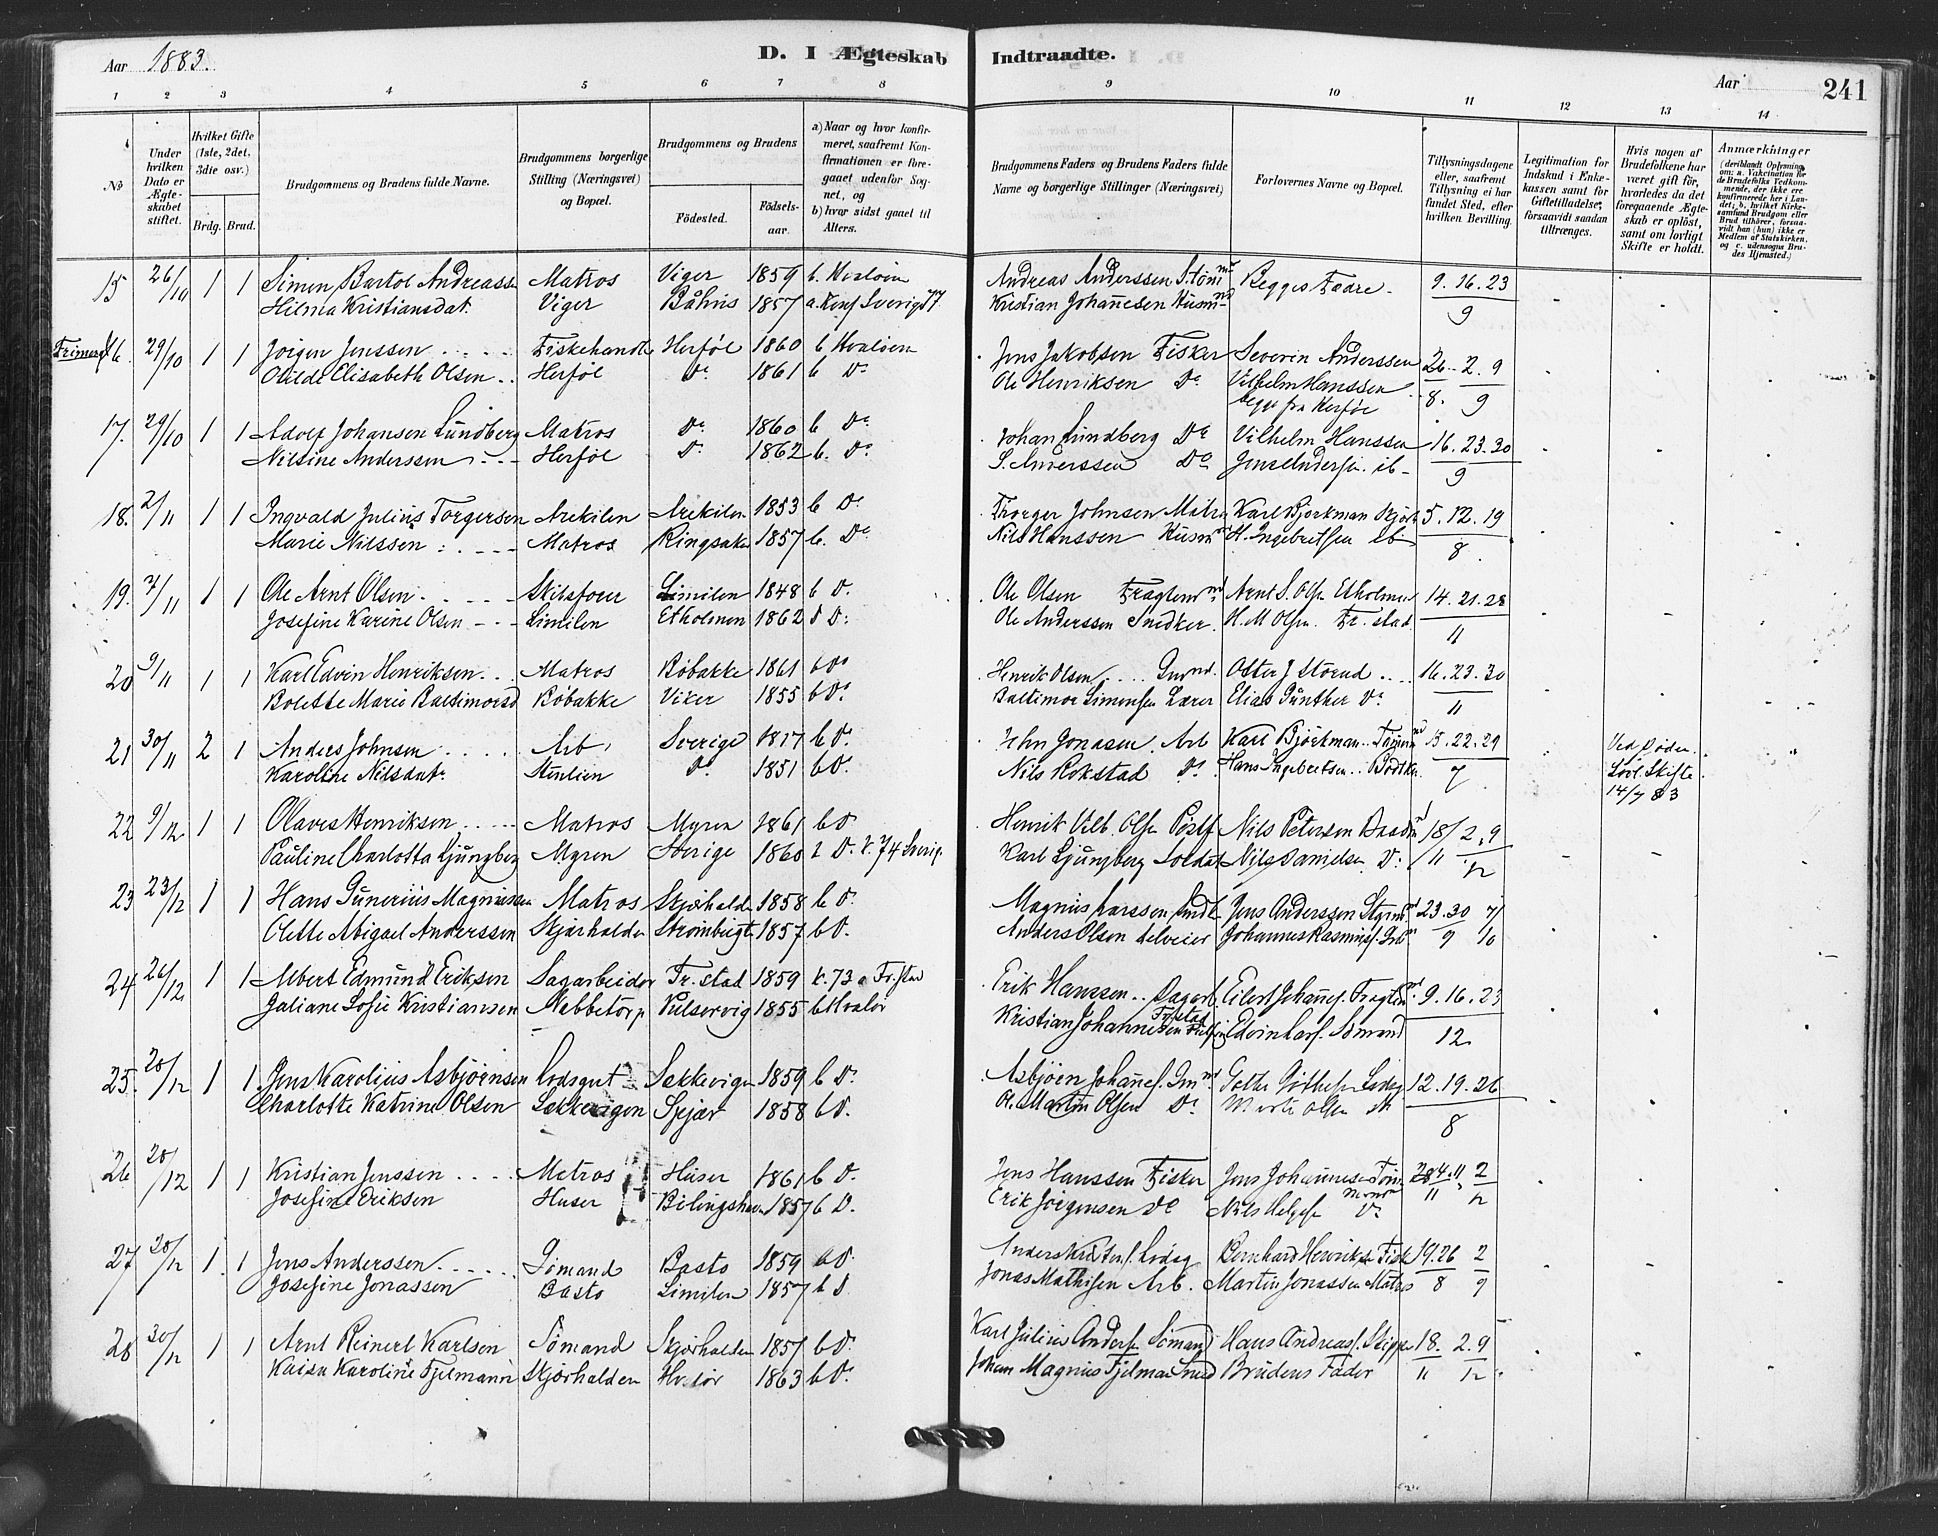 Aar 1883.
D. I Ægteskab Indtraadte.
Aar 241
1 2 3 4 5 6 7 8 9 10 11 12 13 14
No
Under hvilken Dato er Ægteskabet stiftet.
Hvilket Gifte (1ste, 2det, 3die osv.)
Brdg. Brud.
Brudgommens og Brudens fulde Navne.
Brudgommens borgerlige Stilling (Næringsvei) og Bopæl.
Brudgommens og Brudens
Fødested. Fødselsaar.
a) Naar og hvor konfirmeret, saafremt Konfirmationen er foregaaet udenfor Sognet, og
b) hvor sidst gaaet til Alters.
Brudgommens Faders og Brudens Faders fulde Navne og borgerlige Stillinger (Næringsvei)
Forlovernes Navne og Bopæl.
Tillysningsdagene eller, saafremt Tillysning ei har fundet Sted, efter hvilken Bevilling.
Legitimation for Indskud i Enkekassen samt for Giftetilladelse, forsaavidt saadan tiltrænges.
Hvis nogen af Brudefolkene har været gift før, hvorledes da det foregaaende Ægteskab er opløst, samt om lovligt Skifte er holdt.
Anmærkninger
(deriblandt Oplysning om: a. Vakcination for de Brudefolks Vedkommende, der ikke ere konfirmerede her i Landet; b. hvilket Kirkesamfund Brudgom eller Brud tilhører, forsaavidt han (hun) ikke er Medlem af Statskirken, og c. udensogns Brudes Hjemsted.)
15 26/10 1 1 Simen Bartol Andreassen Matros Viger 1859 b. Hvaløen Andreas Anderssen Begges Fædre 9. 16. 23
Hilma Kristiansdat. Viger Båhus 1857 a. Konf Sverig 77 Kristian Johannesen Husmnd 9
16. 29/10 1 1 Jørgen Jenssen Fiskehandler Herføl 1860 b Hvaløen Jens Jakobsen Fisker Severin Anderssen 26. 2. 9
Olilde Elisabeth Olsen Herføl Do 1861 b Do Ole Henriksen Do Vilhelm Hanssen begge fra Herføl 8. 9
17. 29/10 1 1 Adolf Johansen Lundberg Matros Do 1860 b Do Johan Lundberg Do Vilhelm Hanssen 16. 23. 30
Nilsine Anderssen Herføl Do 1862 b. Do S. Anderssen Do Jens Anderss. ib 9
18. 2/11 1 1 Ingvald Julius Torgersen Arekilen Arekilen 1853 b Do Thorger Johnsen Matros Karl Bjørkman 5. 12. 19
Marie Nilssen Matros Ringsaker 1857 b. Do Nils Hanssen Husmnd H. Ingebretsen ib 8
19. 7/11 1 1 Ole Arnt Olsen Skibsfører Limilen 1848 b Do Ole Olsen Fragtemnd Arnt S. Olss. Etholmen 14. 21. 28
Josefine Karine Olsen Limilen Etholmen 1862 b Do Ole Anderssen Snedker H. M Olsen. Fr.stad 11
20 9/11 1 1 Karl Edvin Henriksen Matros Bøbakke 1861 b Do Henrik Olsen Otter J Storød 16. 23. 30
Bolette Marie Baltimorsd Bøbakke Viker 1855 b Do Baltimor Simensen Lærer Elias Günther Do 11
21 30/11 2 1 Anders Johnsen Arb. Sverige 1817 b Do John Jonasen Arb Karl Björkman 15. 22. 29 Ved Døden
Karoline Nilsdatr Do 1851 b Do Nils Rokstad Do Hans Ingebretsen 7 Lovl. Skifte 14/7 83
22 9/12 1 1 Olaves Henriksen Matros Myren 1861 b Do Henrik Vilh. Olss. Nils Petersen 18/11 2. 9
Pauline Charlotta Ljungberg Myren Sverige 1860 Do k. 74 Sverig Karl Ljungberg Soldat Nils Danielsen Do 12
23 23/12 1 1 Hans Gunerius Magnussen Matros Skjærhalden 1858 b Do Magnus Larssen Jens Anderssen Styrmnd 23. 30 7/
Olette Abigael Anderssen Skjærhalden Strømtangen 1857 b Do Anders Olsen Selveier Johannes Rasmuss. 9 10
24 26/12 1 1 Albert Edmund Eriksen Sagarbeider Fr.stad 1859 k. 73 a Fr.stad Erik Hanssen Sagarb. Eilert Johaness. Fragtemnd 9. 16. 23
Juliane Sofie Kristiansen Nabbetorp 1855 b Hvalør Kristian Johannesen Edvin Larss. Sømand 12
25. 28/12 1 1 Jens Karolius Asbjørnsen Lodsgut Sækkevigen 1859 b Do Asbjørn Johaness. 12. 19. 26
Charlotte Katrine Olsen Sækkevigen Spjær 1858 b Do O. Martin Olsen Do 8
26 28/12 1 1 Kristian Jenssen Matros Huser 1861 b Do Jens Hanssen Fisker Jens Johannesen 4. 11. 2
Josefine Eriksen Huser 1857 b Do Erik Jørgensen Do Nils Helgess Do 11 12
27 28/12 1 1 Jens Anderssen Sømand Basto 1859 b Do Anders Kristens. Bernhard Henriksen Fisk 19. 26 2
Josefine Jonassen Basto Limilen 1857 b Do Jonas Mathisen Arb. Martin Jonassen Matros 8 9
28 30/12 1 1 Arnt Reinert Karlsen Sømand Skjærhalden 1857 b Do Karl Julius Anderss. Sømand Hans Andreass. Skipper 18. 2. 9
Kaisa Karoline Fjelmann Skjærhalden Hvalør 1863 b Do Johan Magnus Fjelman Brudens Fader 11 12